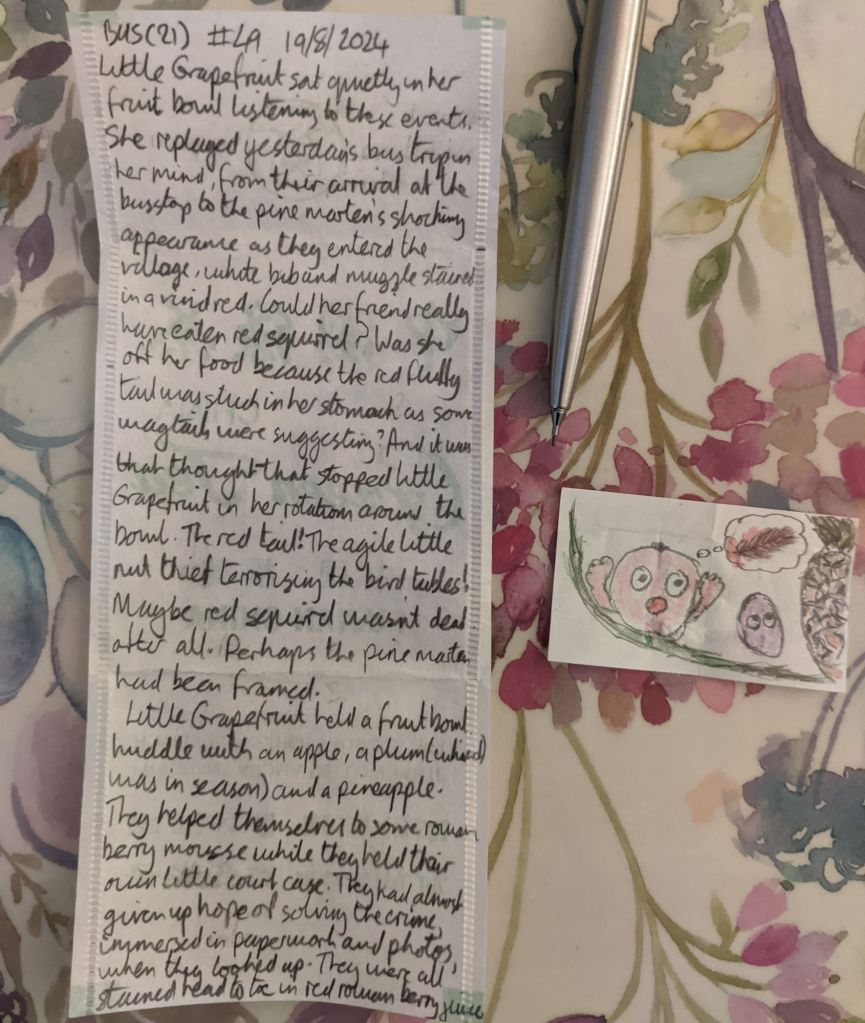 BUS(21) #LA 19/8/2024
Little Grapefruit sat quietly in her
fruit bowl listening to these events.
She replayed yesterday's bus trip in
her mind, from their arrival at the
busstop to the pine marten's shocking
appearance as they entered the
village, white bib and muzzle stained
in a vivid red. Could her friend really
have eaten red squirrel? Was she
off her food because the red fluffy
tail was stuck in her stomach as some
wagtails were suggesting? And it was
that thought that stopped Little
Grapefruit in her rotation around the
bowl. The red tail! The agile little
nut thief terrorising the bird tables!
Maybe red squirrel wasnt dead
after all. Perhaps the pine marten
had been framed.
Little Grapefruit held a fruit bowl
huddle with an apple, a plum (which
was in season) and a pineapple.
They helped themselves to some rowan
berry mousse while they held their
own little court case. They had almost
given up hope of solving the crime,
immersed in paperwork and photos,
when they looked up. They were all
stained head to toe in red rowan berry juice